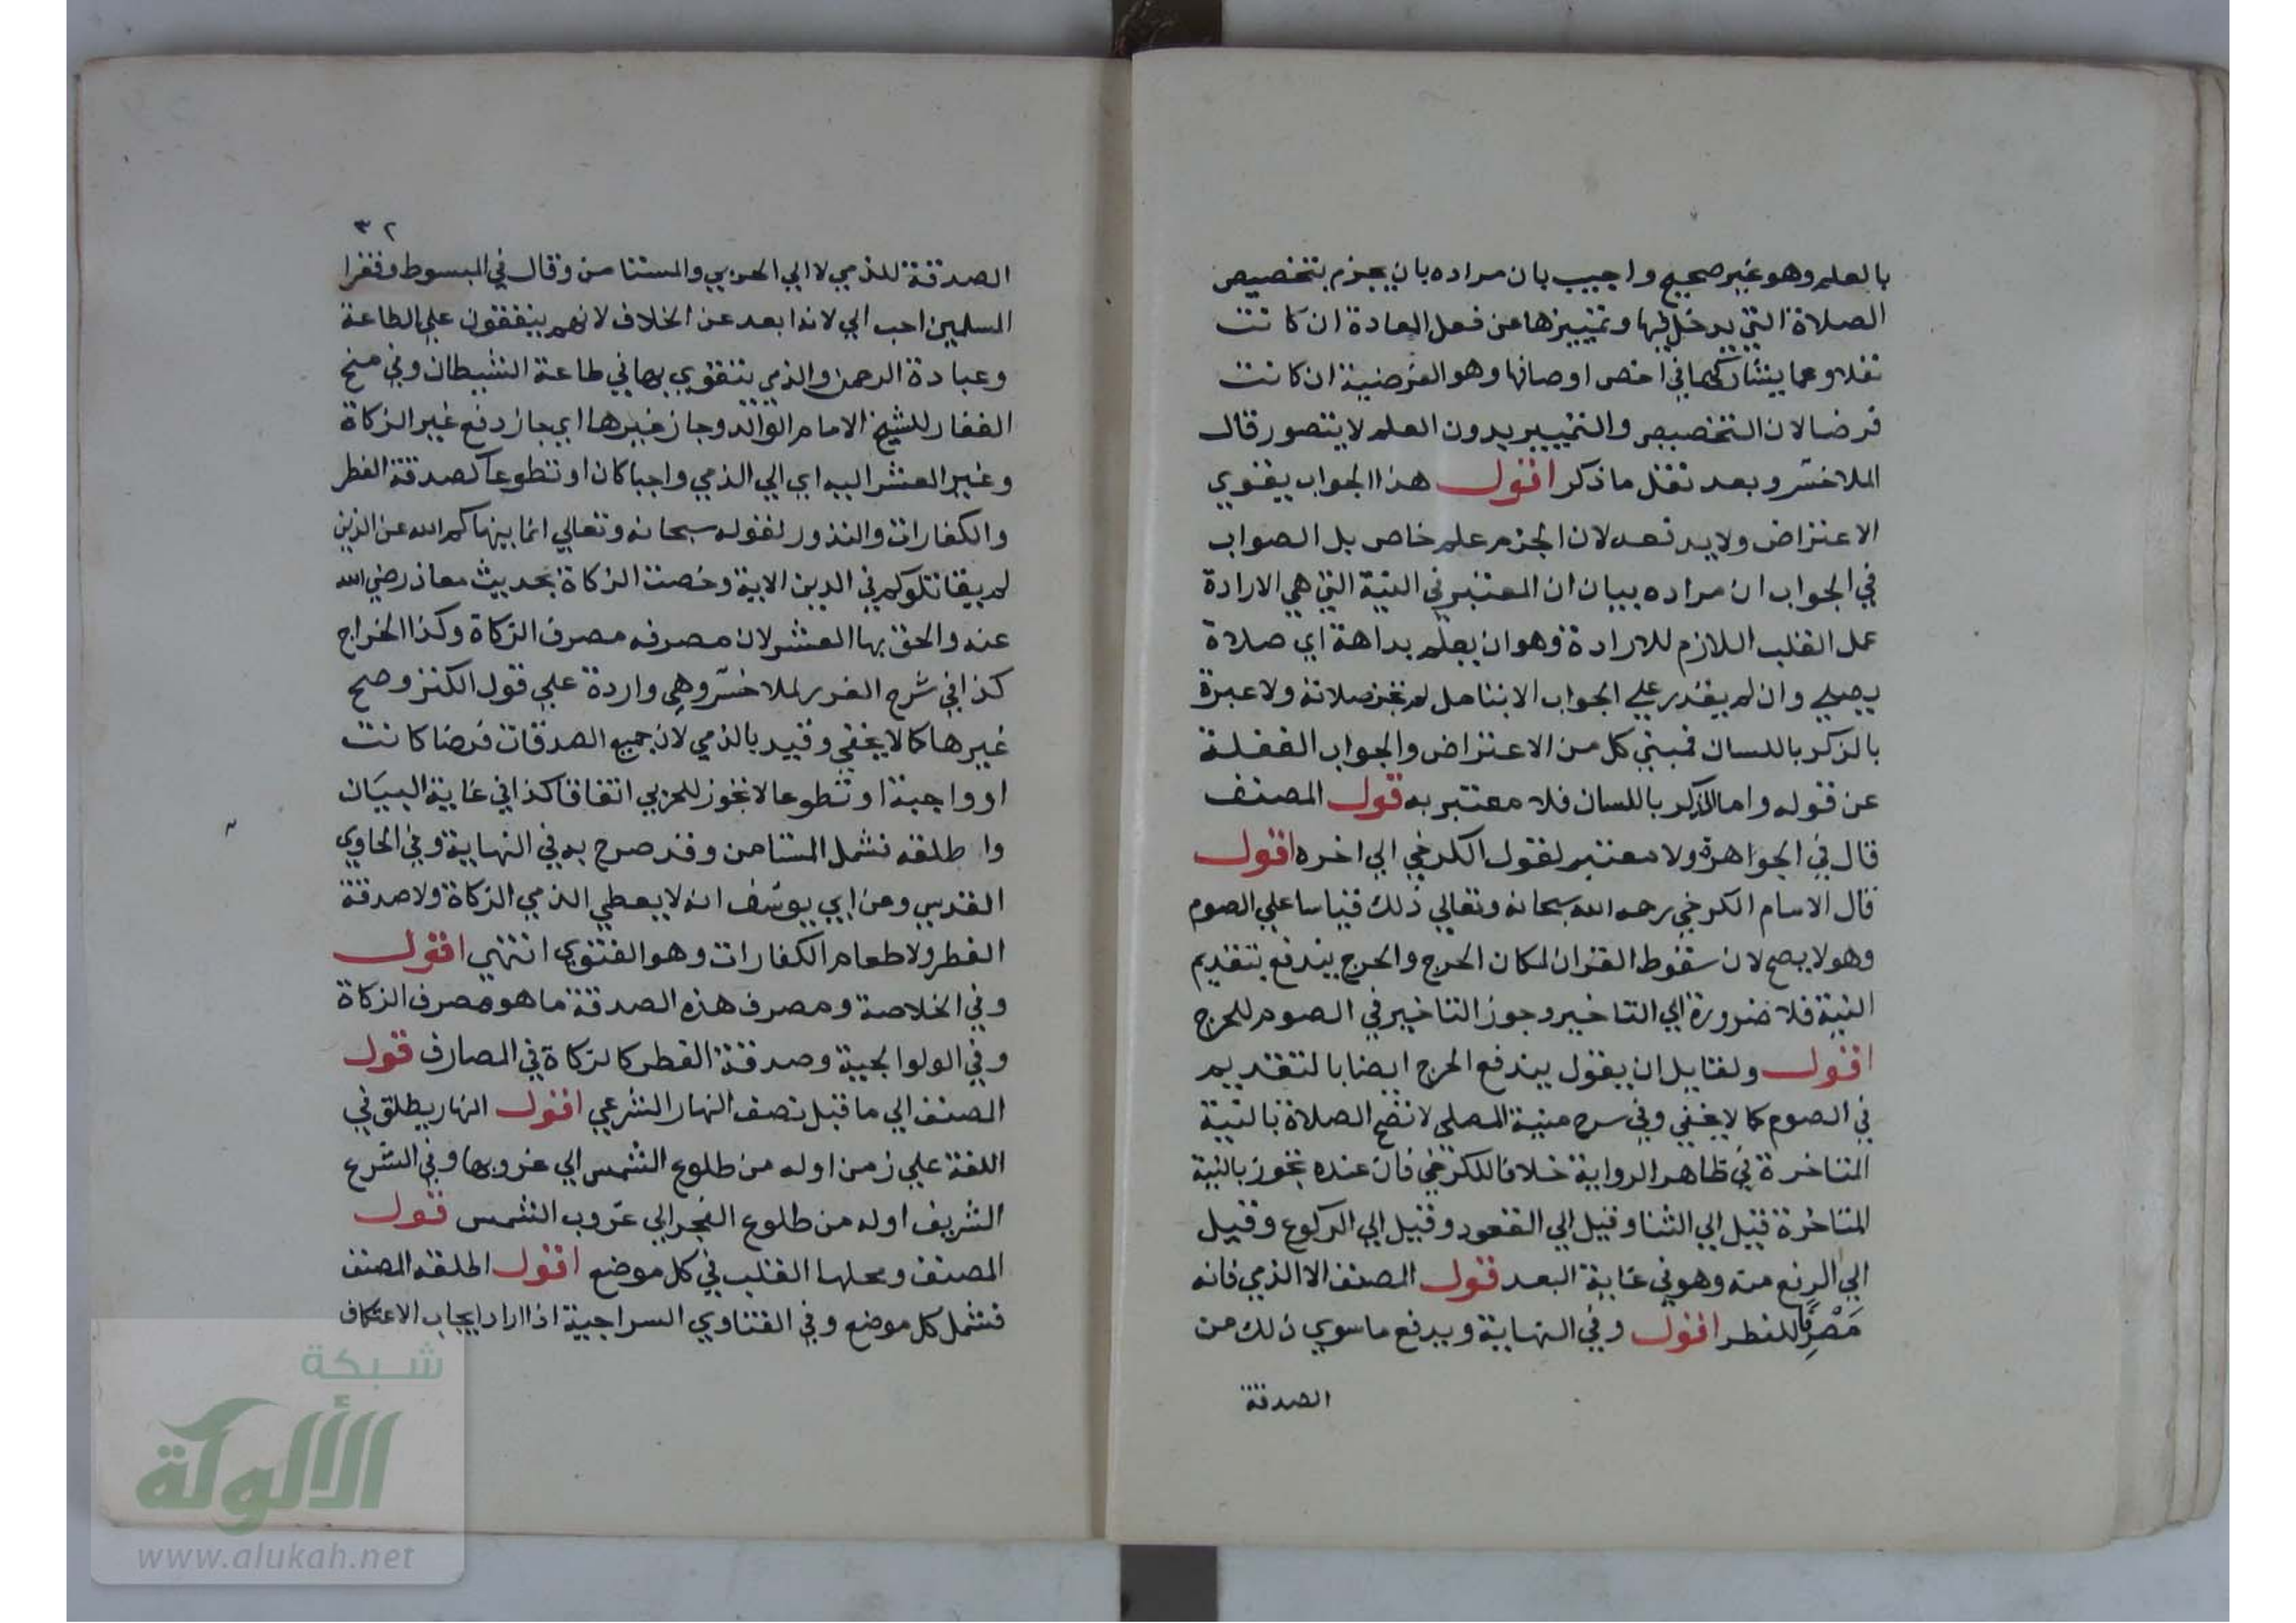 بالعلم وهو غير صحيح واجيب بان مراده بان يجزم بتخصيص
الصلاة التي يدخل فيها وتمييزها عن فعل العادة ان كانت
نفلا وعما يشاركها في اخص اوصافها وهو الفرضية ان كانت
فرضا لان التخصيص والتمييز بدون العلم لا يتصور قال
الملاخسرو بعد نقل ما ذكر اقول هذا الجواب يقوي
الاعتراض ولا يدفعه لان الجزم علم خاص بل الصواب
في الجواب ان مراده بيان ان المعتبر في النية التي هي الارادة
عمل القلب اللازم للارادة وهو ان يعلم بداهة اي صلاة
يصلي وان لم يقدر على الجواب الا بتامل لم تجز صلاته ولا عبرة
بالذكر باللسان فمبنى كل من الاعتراض والجواب الغفلة
عن قوله واما الذكر باللسان فلا معتبر به قول المصنف
قال في الجواهرة ولا معتبر لقول الكرخي الي اخره اقول
قال الامام الكرخي رحمه الله سبحانه وتعالي ذلك قياسا علي الصوم
وهو لا يصح لان سقوط القران لمكان الحرج والحرج يندفع بتقديم
النية فلا ضرورة الي التاخير وجوز التاخير في الصوم للحرج
اقول ولقايل ان يقول يندفع الحرج ايضا بالتقديم
في الصوم كما لا يخفي وفي سرح منية المصلي لا تصح الصلاة بالنية
المتاخرة في ظاهر الرواية خلافا للكرخي فان عنده تجوز بالنية
المتاخرة قيل الي الثنا وقيل الي القعود وقيل الي الركوع وقيل
الي الرفع منه وهو في غاية البعد قول المصنف الا الذمي فانه
مَصْرِفًا للفطر اقول وفي النهاية ويدفع ما سوي ذلك من
الصدقة
٣٢
الصدقة للذمي لا الي الحربي والمستامن وقال في المبسوط وفقرا
المسلمين احب الي لانه ابعد عن الخلاف لانهم يتفقون علي الطاعة
وعبادة الرحمن والذمي يتقوي بها في طاعة الشيطان وفي منح
الغفار للشيخ الامام الوالد وجاز غيرها اي جاز دفع غير الزكاة
وغير العشر اليه اي الي الذمي واجبا كان او تطوعا كصدقة الفطر
والكفارات والنذور لقوله سبحانه وتعالي انما ينهاكم الله عن الذين
لم يقاتلوكم في الدين الاية وخصت الزكاة بحديث معاذ رضي الله
عنه والحق بها العشر لان مصرفه مصرف الزكاة وكذا الخراج
كذا في شرح الغرر لملاخسرو وهي واردة علي قول الكنز وصح
غيرها كما لا يخفي وقيد بالذمي لان جميع الصدقات فرضا كانت
او واجبة او تطوعا لا تجوز للحربي اتفاقا كذا في غاية البيان
واطلقه فشمل المستامن وقد صرح به في النهاية وفي الحاوي
القدسي وعن ابي يوسف انه لا يعطي الذمي الزكاة ولا صدقة
الفطر ولا طعام الكفارات وهو الفتوي انتهي اقول
وفي الخلاصة ومصرف هذه الصدقة ما هو مصرف الزكاة
وفي الولوالجية وصدقة الفطر كالزكاة في المصارف قول
المصنف الي ما قبل نصف النهار الشرعي اقول النهار يطلق في
اللغة علي زمن اوله من طلوع الشمس الي غروبها وفي الشرع
الشريف اوله من طلوع الفجر الي غروب الشمس قول
المصنف ومحلها القلب في كل موضع اقول اطلقه المصنف
فشمل كل موضع وفي الفتاوي السراجية اذا اراد ايجاب الاعتكاف
شبكة
الألوكة
www.alukah.net